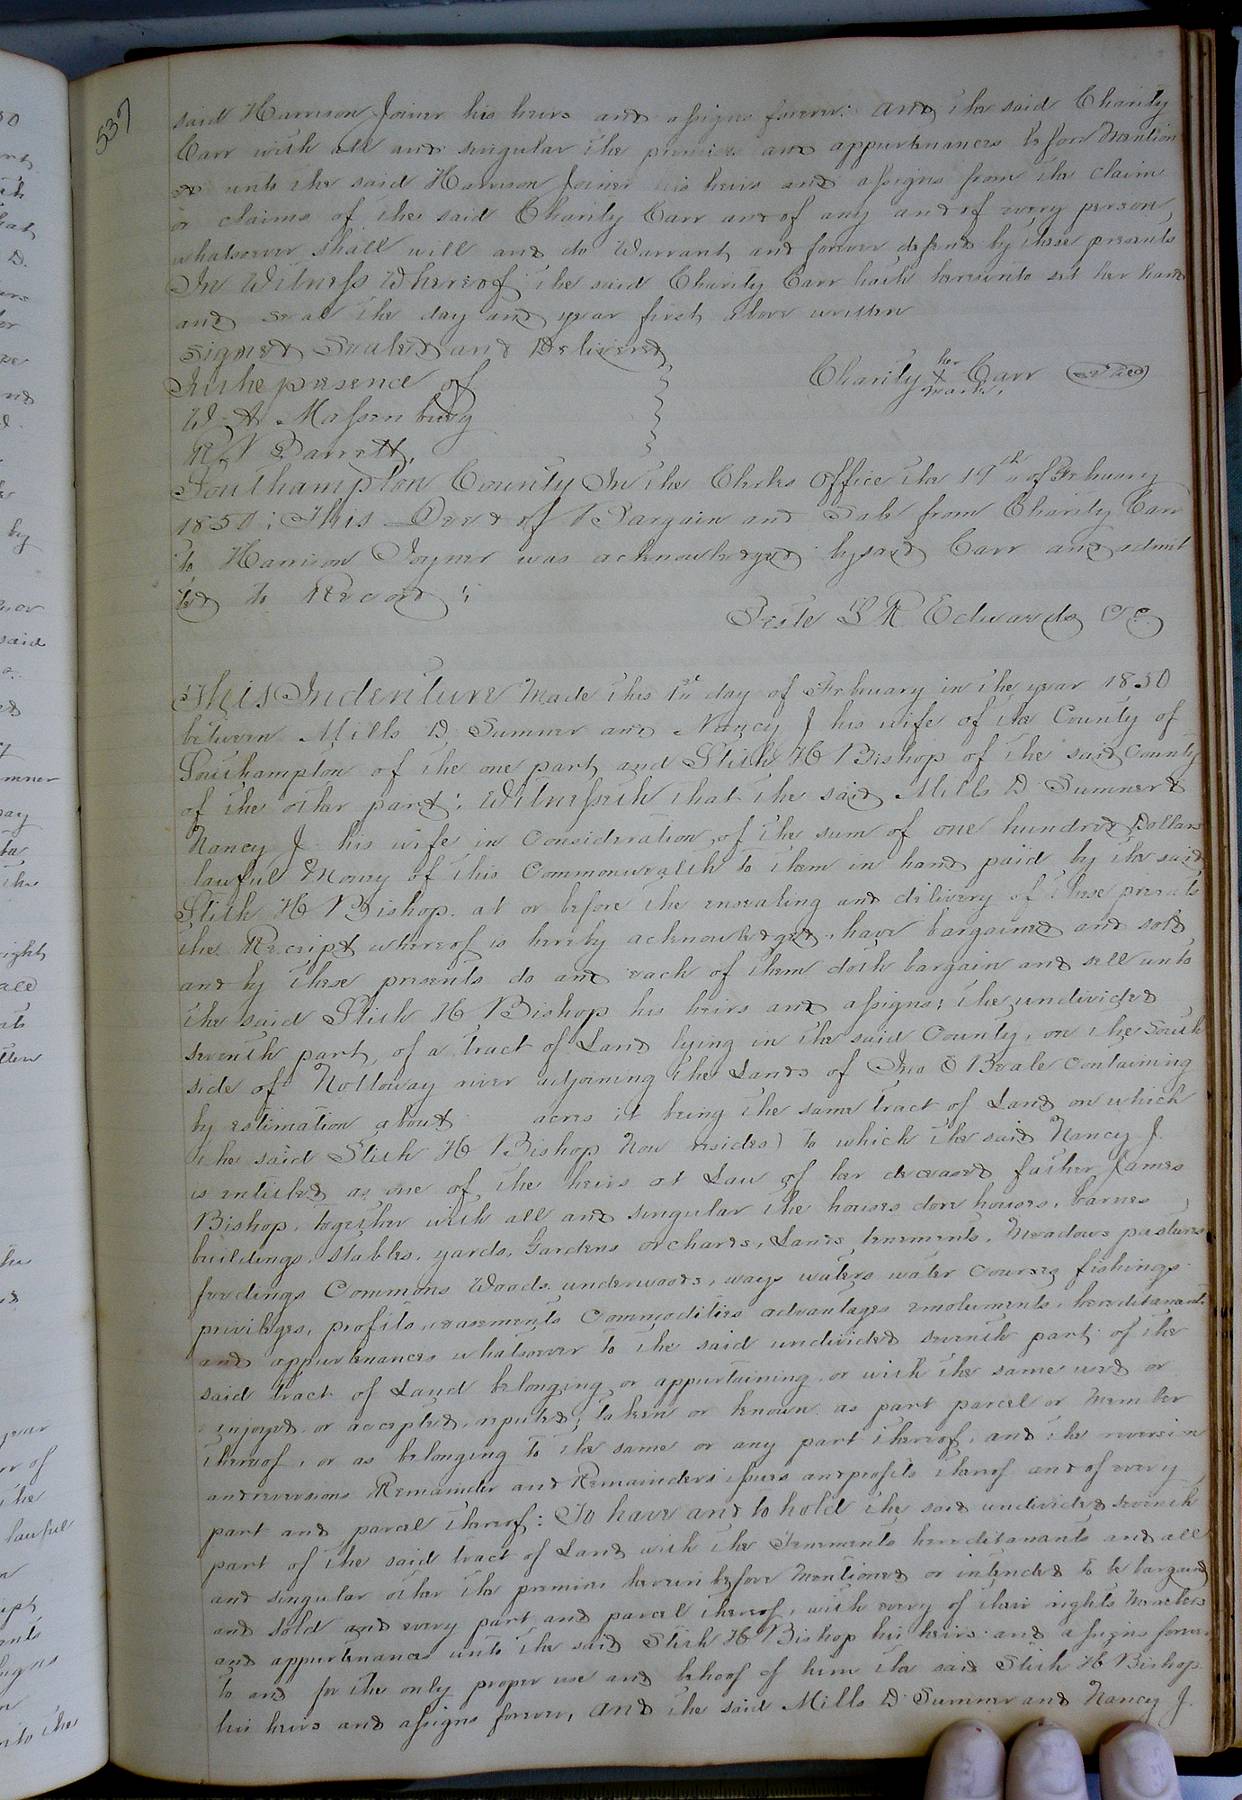 537
said Harrison Joiner his heirs and assigns forever: and the said Charity
Carr with all and singular the premises and appurtenances before mention
ed unto the said Harrison Joiner his heirs and assigns from the claim
or claims of the said Charity Carr and of any and of every person
whatsoever shall will and do Warrant and forever defend by these presents
In Witness Whereof the said Charity Carr hath hereunto set her hand
and seal the day and year first above written
Signed Sealed and Delivered
In the presence of
Charity her X mark Carr (seal)
W. A. Massenburg
R N Barrett
Southampton County In the Clerks Office the 19th of February
1850; This Deed of Bargain and Sale from Charity Carr
to Harrison Joyner was acknowledged by said Carr and admit
ted to Record;
Teste L R Edwards CC
This Indenture Made this 1st day of February in the year 1850
between Mills D Sumner and Nancy J his wife of the County of
Southampton of the one part and Stith H Bishop of the said County
of the other part; Witnesseth that the said Mills D Sumner &
Nancy J his wife in Consideration of the sum of one hundred Dollars
lawful Money of this Commonwealth to them in hand paid by the said
Stith H Bishop at or before the ensealing and delivery of these presents
the Receipt whereof is hereby acknowledged, have bargained and sold
and by these presents do and each of them doth bargain and sell unto
the said Stith H Bishop his heirs and assigns; the undivided
seventh part, of a tract of Land lying in the said County, on the South
side of Nottoway river adjoining the Lands of Jno O Beale containing
by estimation about acres it being the same tract of Land on which
the said Stith H Bishop Now resides) to which the said Nancy J.
is entitled as one of the heirs at Law of her deceased father James
Bishop, together with all and singular the houses dove houses, barnes
buildings, stables, yards, Gardens orchards, Lands tenements, Meadows pastures
feedings Commons Woods, underwoods, ways waters water courses fishings
privileges, profits, easements Commodities advantages emoluments, hereditaments
and appurtenances whatsoever to the said undivided seventh part of the
said tract of Land belonging or appurtaining, or with the same used or
enjoyed or accepted, reputed, taken or known as part parcel or Member
thereof, or as belonging to the same or any part thereof, and the reversion
and reversions Remainder and Remainders issues and profits thereof and of every
part and parcel thereof: To have and to hold the said undivided seventh
part of the said tract of Land with the Tenements hereditaments and all
and singular other the premises herein before Mentioned or intended to be bargained
and sold and every part and parcel thereof, with every of their rights Members
and appurtenances unto the said Stith H Bishop his heirs and assigns forever
to and for the only proper use and behoof of him the said Stith H Bishop
his heirs and assigns forever, and the said Mills D Sumner and Nancy J.